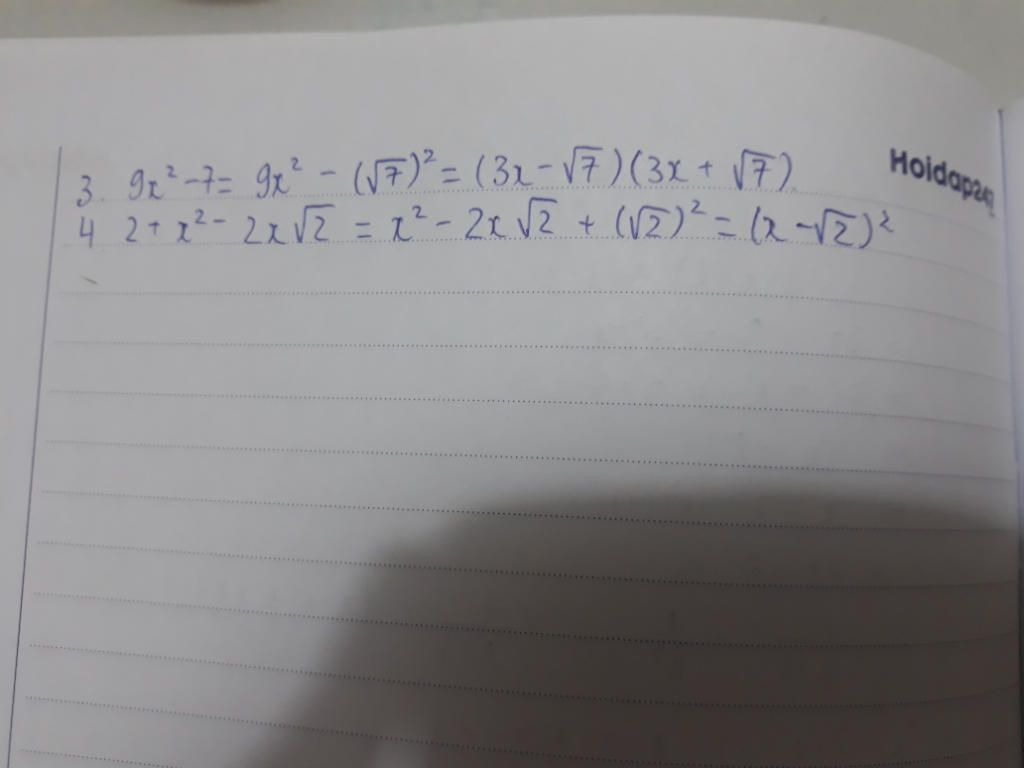 3. 9x² - 7 = 9x² - (√7)² = (3x - √7)(3x + √7).
4 2 + x² - 2x√2 = x² - 2x√2 + (√2)² = (x - √2)²
Hoidap247